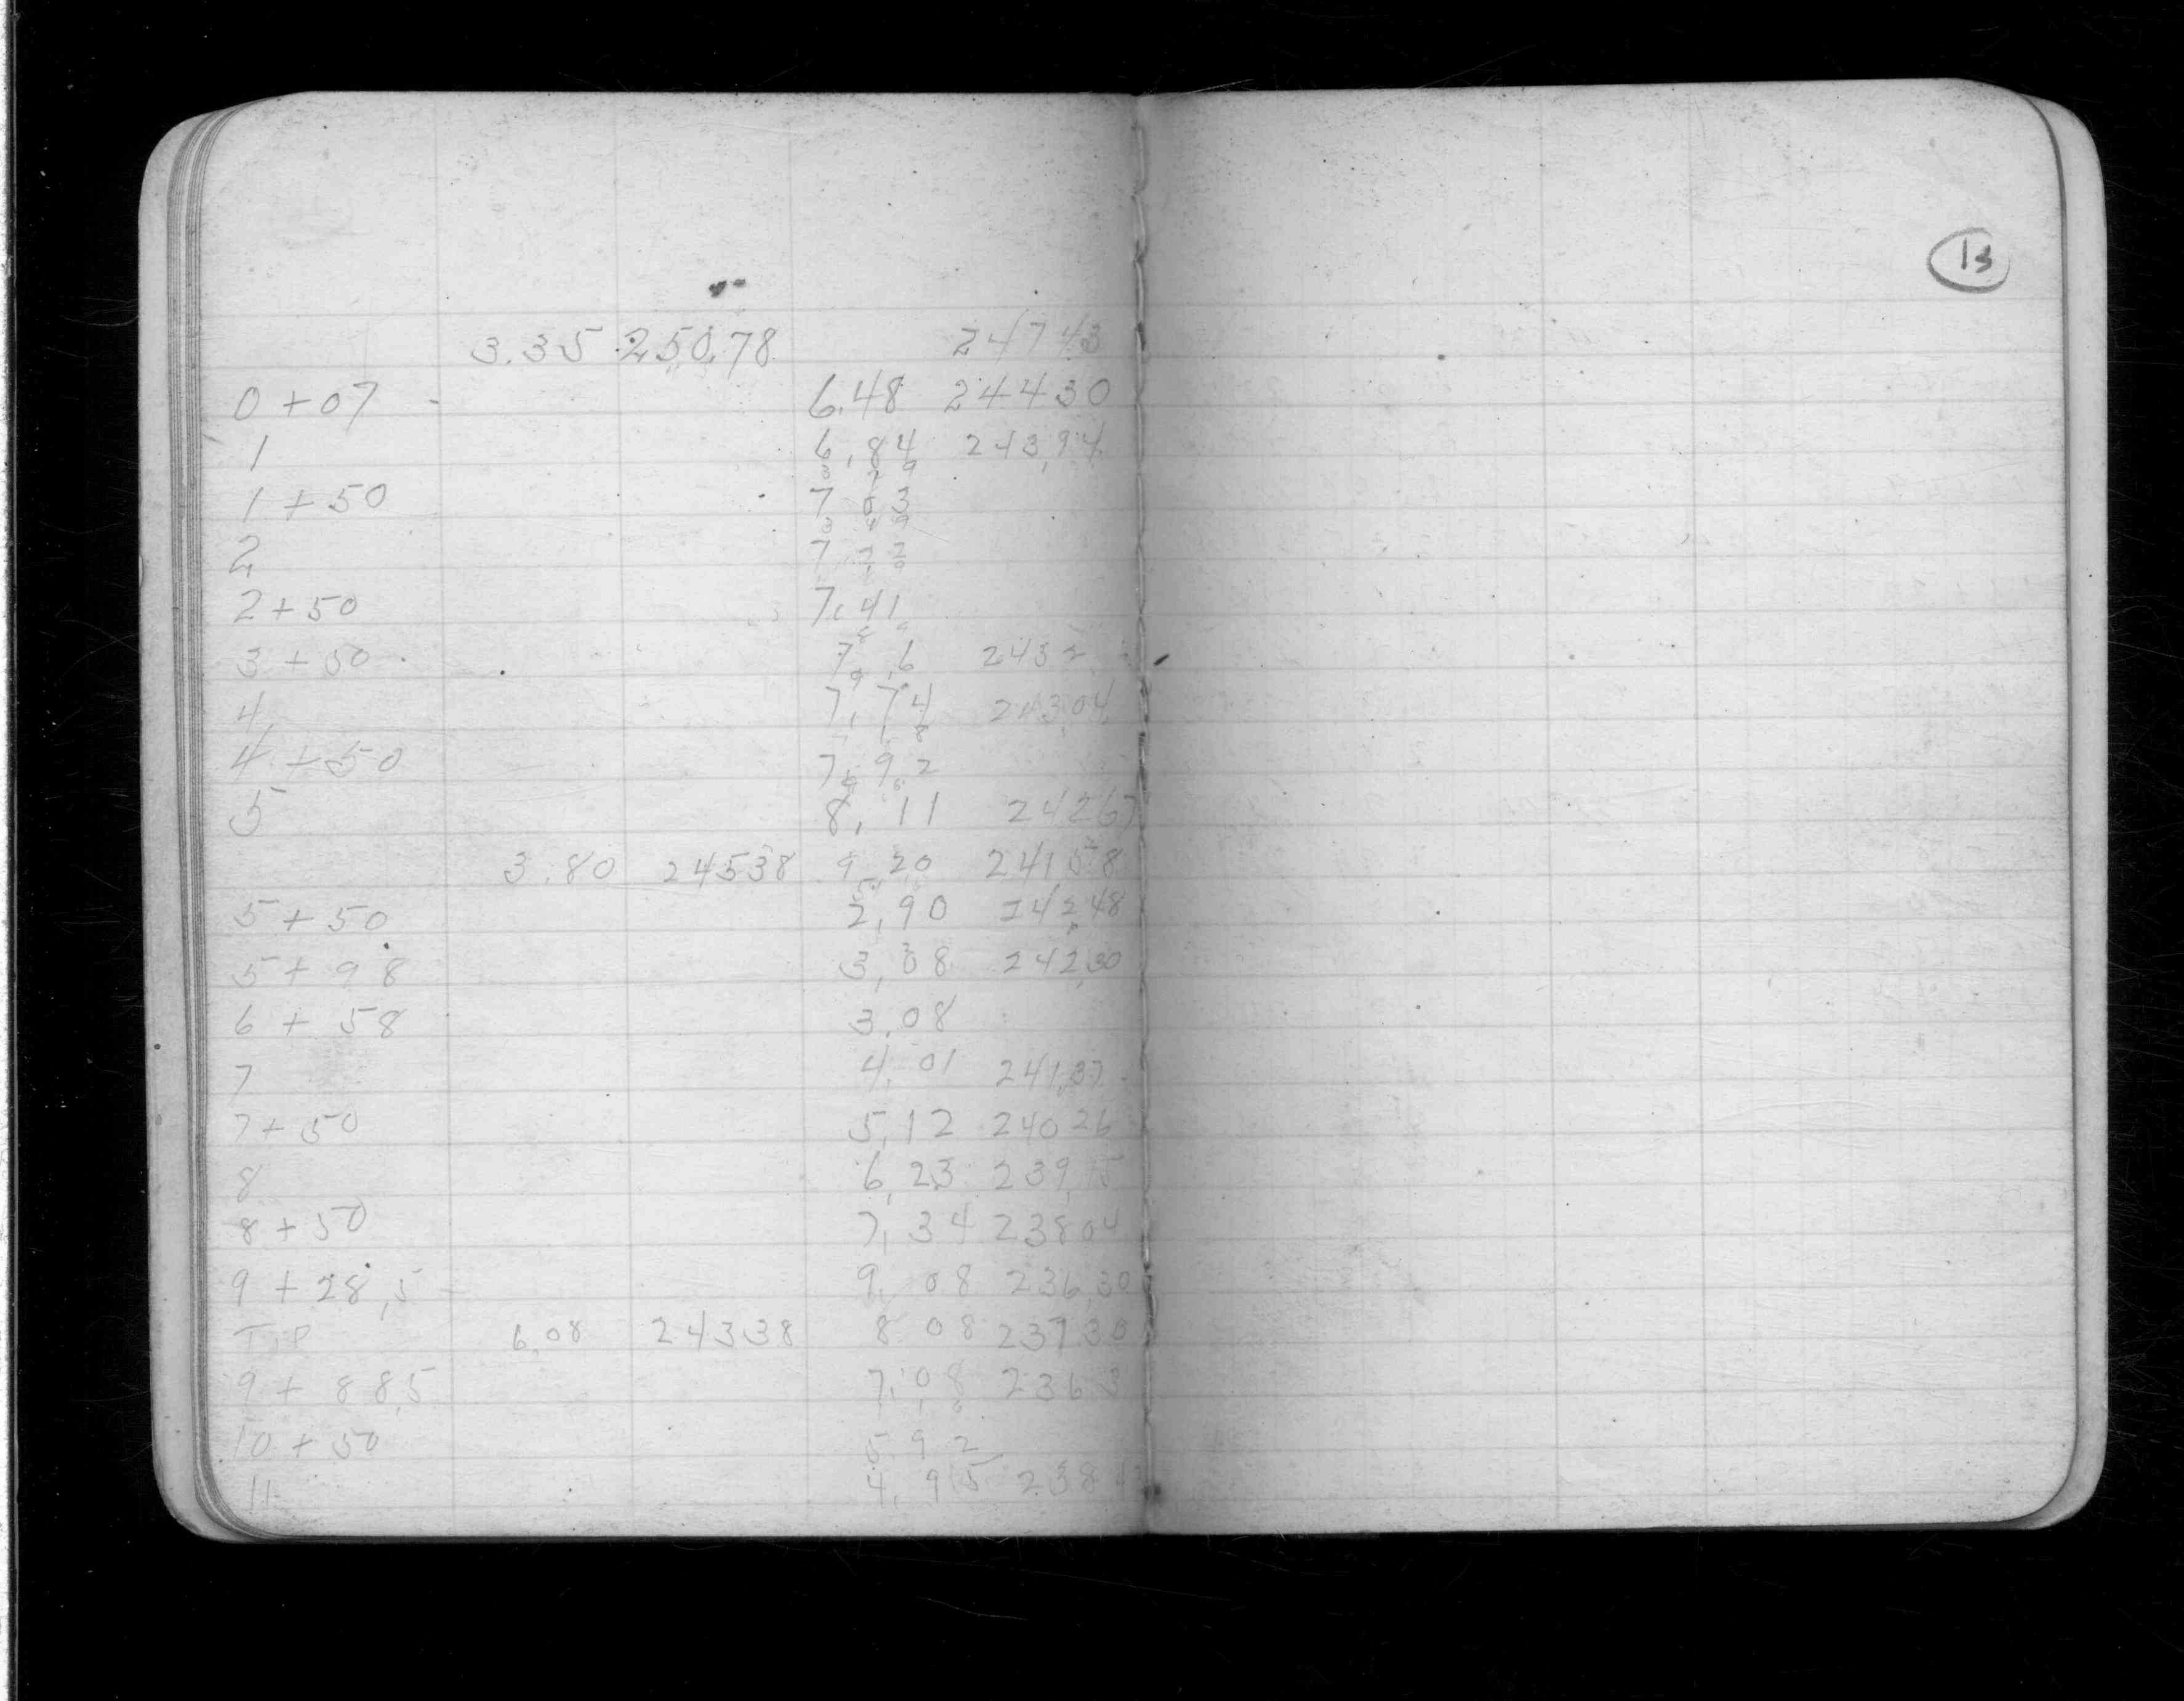 13
3.35 250.78 24743
0+07 6.48 24430
1 6,84 243,94
1+50 7 03
2 7 22
2+50 7.41
3+50 7 6 2432
4 7,74 243,04
4+50 7,92
5 8,11 24267
3.80 24538 9 20 24158
5+50 2,90 24248
5+98 3,08 242,30
6+58 3.08
7 4,01 241,37
7+50 5,12 24026
8 6,23 239,15
8+50 7,34 23804
9+28,5 9,08 236,30
T.P 6,08 24338 8 08 23730
9+88,5 7,08 2363
10+50 5 92
11 4,95 238